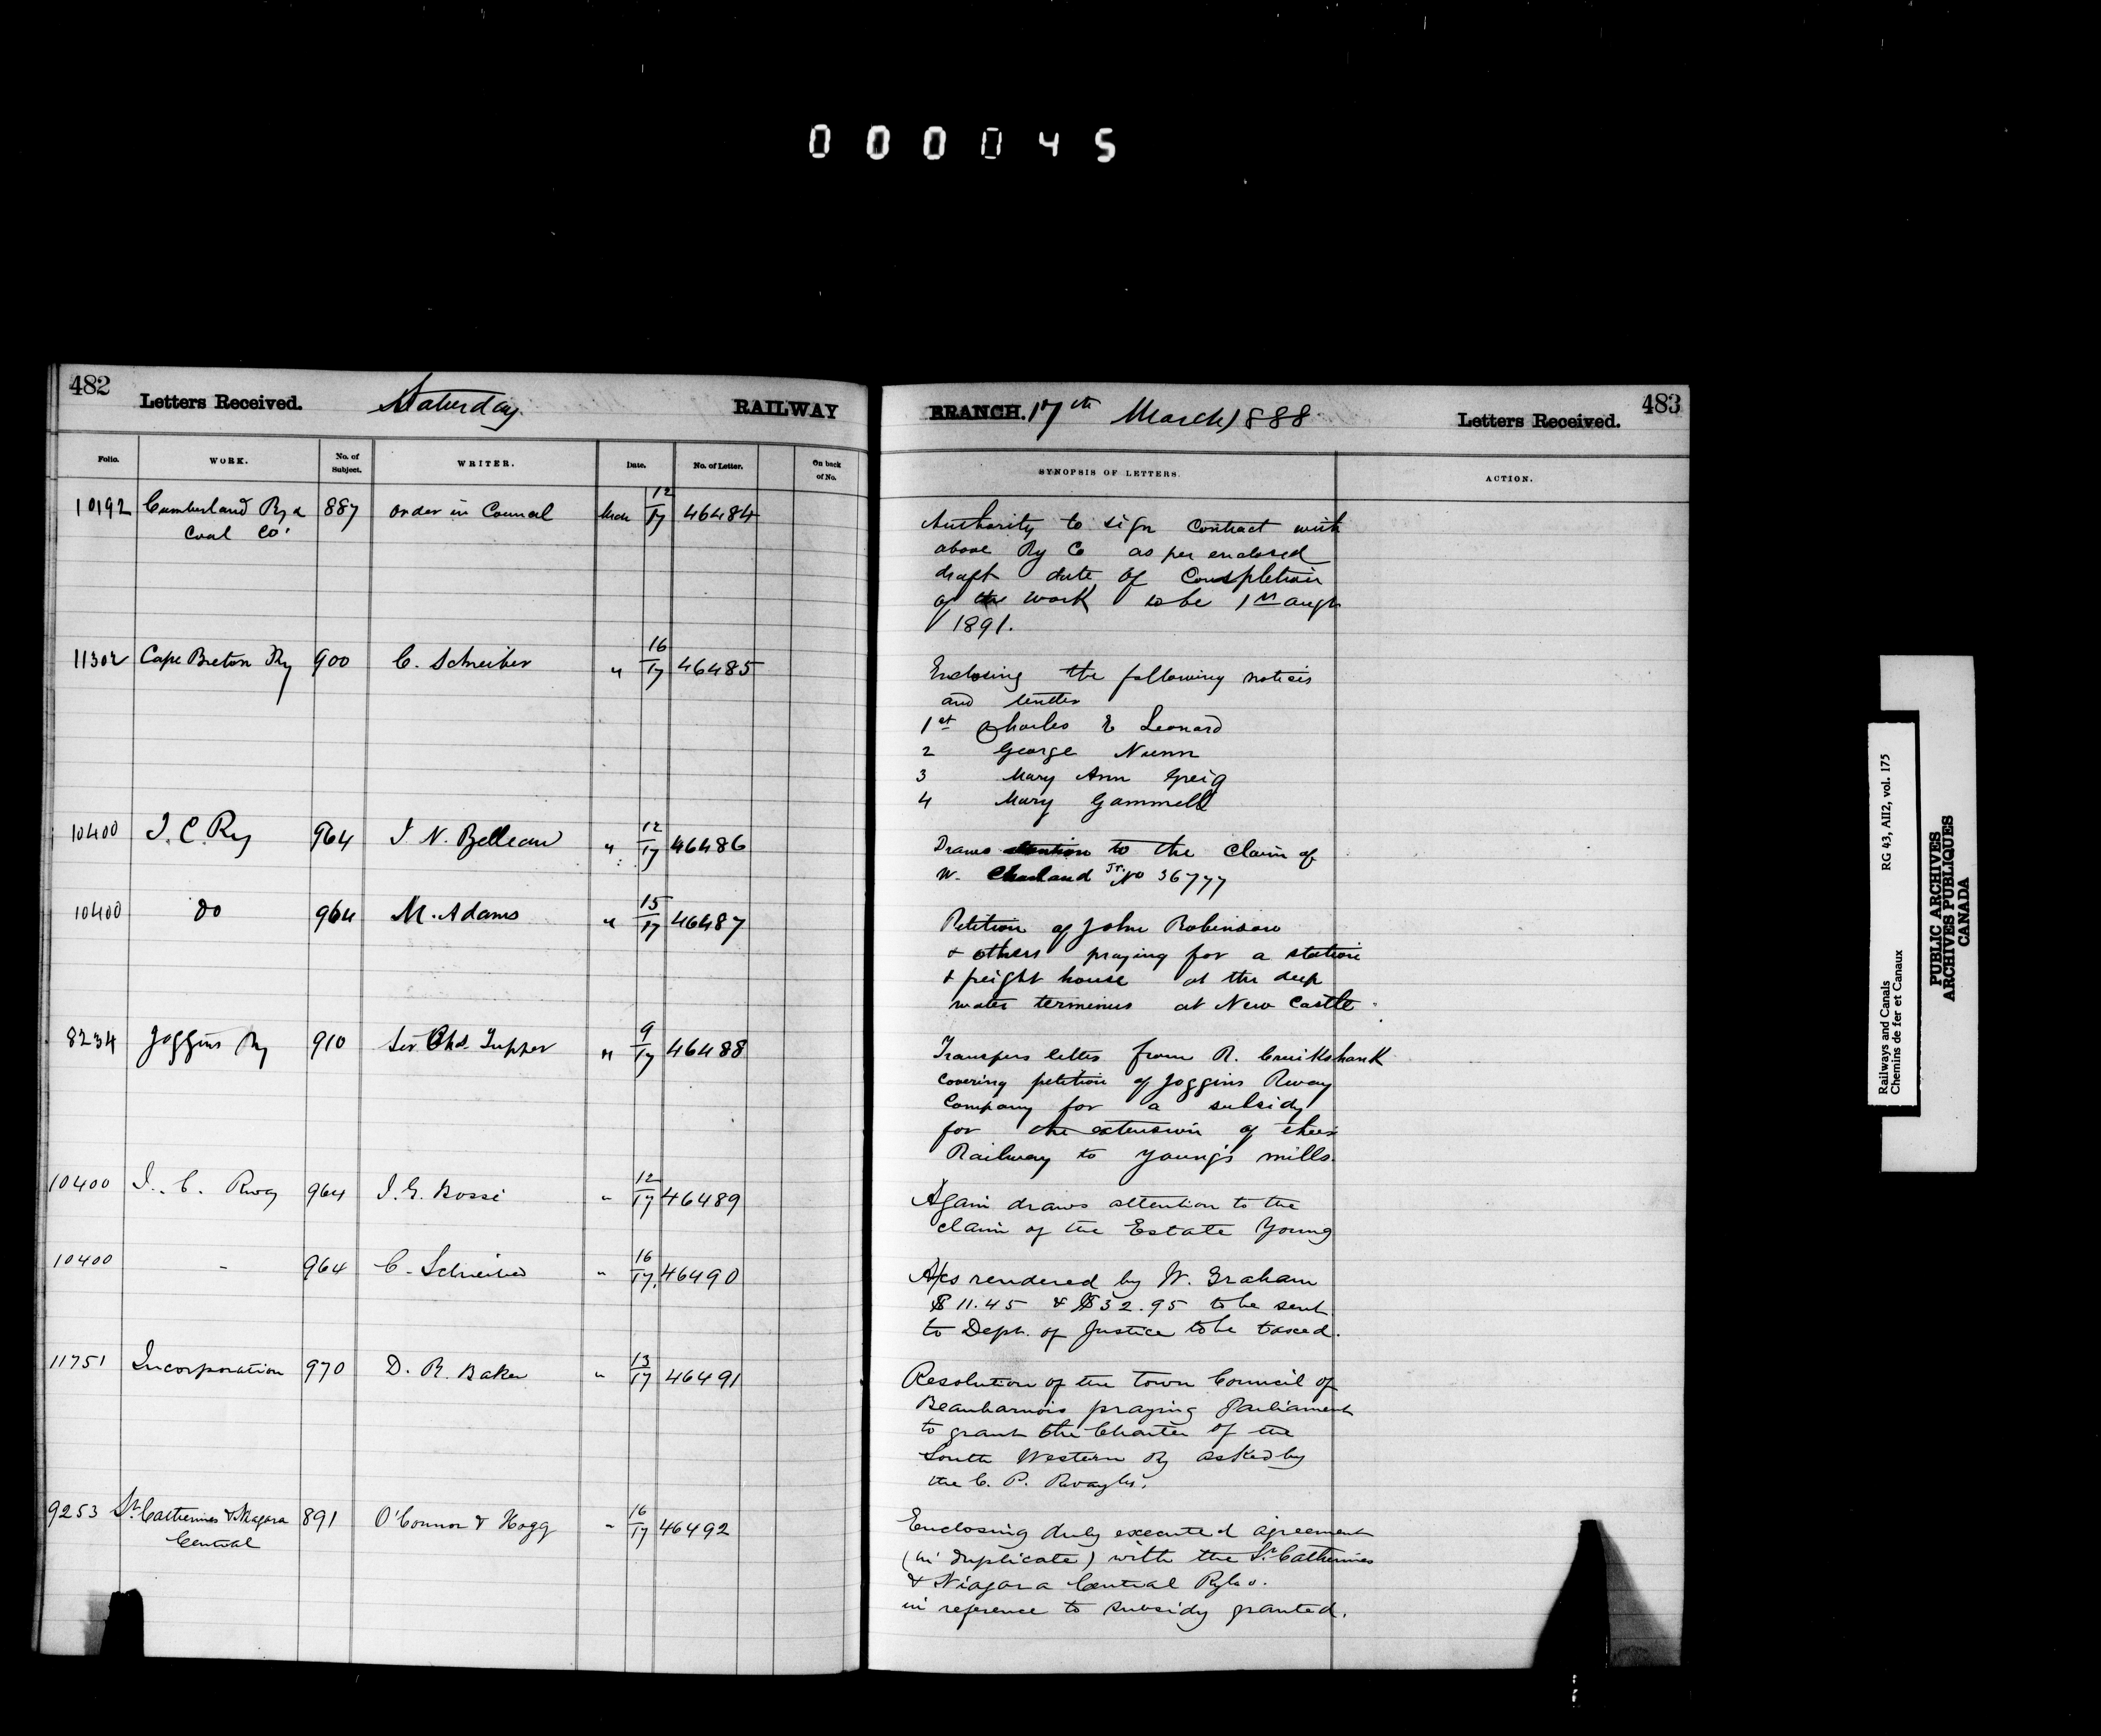 000045
482
Letters Received.
Saturday
RAILWAY
BRANCH. 17th March 1888
Letters Received.
483
Folio. WORK. No. of Subject. WRITER. Date. No. of Letter. On back of No.
SYNOPSIS OF LETTERS. ACTION.
10192 Cumberland Ry & 887 Order in Council Mch 12/17 46484
Coal Co.
Authority to sign contract with
above Ry Co as per enclosed
draft date of completion
of the work to be 1st Augt
1891.
11302 Cape Breton Ry 900 C. Schreiber " 16/17 46485
Enclosing the following notices
and tender
1st Charles E Leonard
2 George Nunn
3 Mary Ann Greig
4 Mary Gammell
10400 I. C. Ry 964 I. N. Belleau " 12/17 46486
Draws attention to the claim of
W. Charland Jr. No 36777
10400 do 964 M. Adams " 15/17 46487
Petition of John Robinson
& others praying for a station
& freight house at the deep
water terminus at New Castle.
8234 Joggins Ry 910 Sir Chs. Tupper " 9/17 46488
Transfers letter from R. Cruikshank
covering petition of Joggins Rway
Company for a subsidy
for the extension of their
Railway to Young's mills.
10400 I. C. Rway 964 J. G. Bossé " 12/17 46489
Again draws attention to the
claim of the Estate Young
10400 " 964 C. Schreiber " 16/17 46490
A/cs rendered by W. Graham
$11.45 & $32.95 to be sent
to Dept. of Justice to be taxed.
11751 Incorporation 970 D. R. Baker " 13/17 46491
Resolution of the Town Council of
Beauharnois praying Parliament
to grant the Charter of the
South Western Ry asked by
the C. P. Rway Co.
9253 St. Catherines & Niagara 891 O'Connor & Hogg " 16/17 46492
Central
Enclosing duly executed agreement
(in duplicate) with the St. Catherines
& Niagara Central Ry Co.
in reference to subsidy granted.
Railways and Canals RG 43, AII2, vol. 175
Chemins de fer et Canaux
PUBLIC ARCHIVES
ARCHIVES PUBLIQUES
CANADA